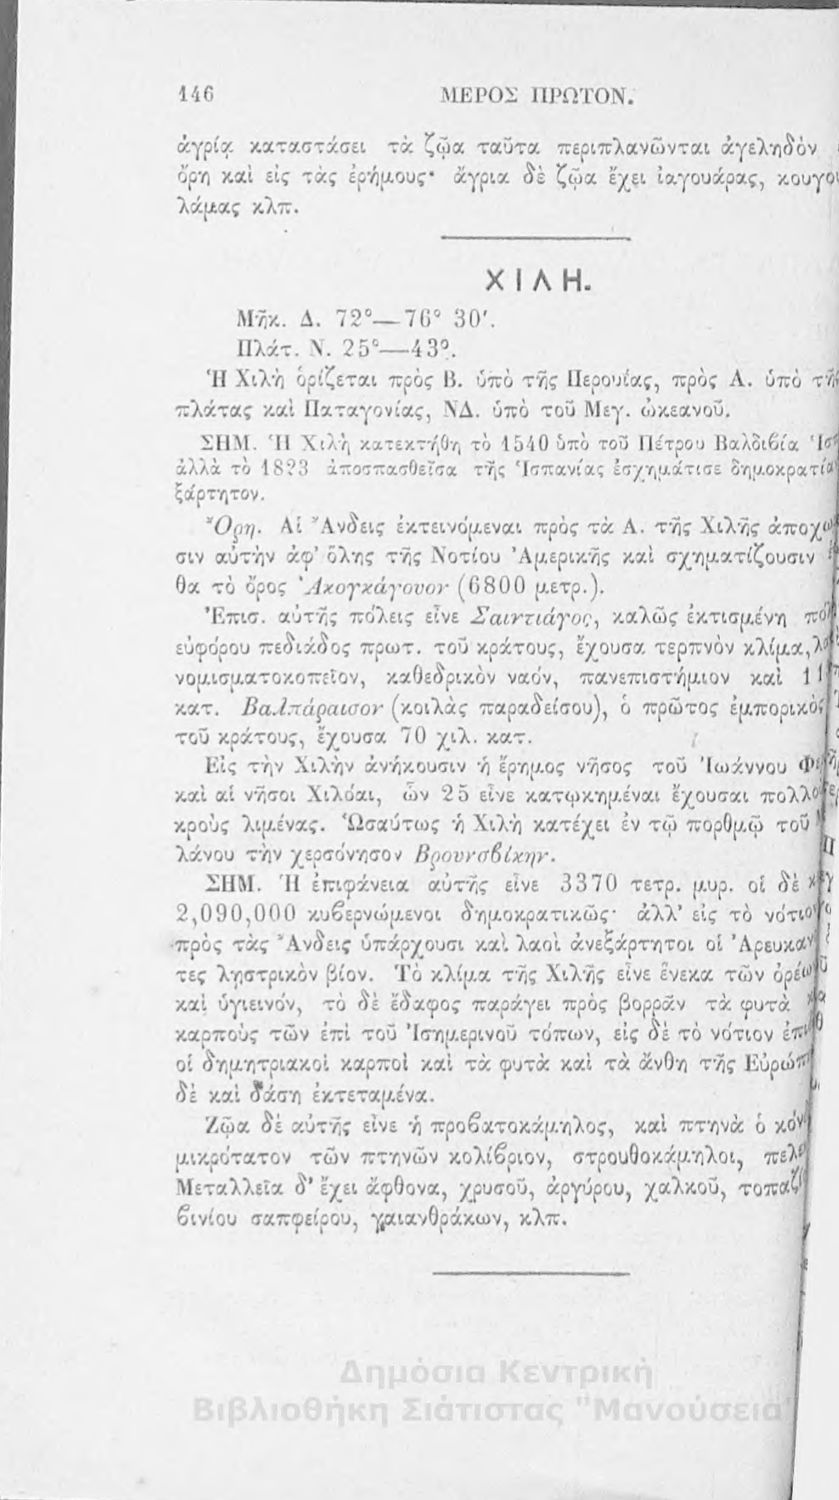 146 ΜΕΡΟΣ ΠΡΩΤΟΝ.
ἀγρίᾳ καταστάσει τὰ ζῷα ταῦτα περιπλανῶνται ἀγεληδὸν
ὄρη καὶ εἰς τὰς ἐρήμους· ἄγρια δὲ ζῷα ἔχει ἰαγουάρας,
λάμας κλπ.
ΧΙΛΗ.
Μῆκ. Δ. 72°—76° 30′.
Πλάτ. Ν. 25°—43°.
Ἡ Χιλὴ ὁρίζεται πρὸς Β. ὑπὸ τῆς Περουΐας, πρὸς Α. ὑπὸ
πλάτας καὶ Παταγονίας, ΝΔ. ὑπὸ τοῦ Μεγ. ὠκεανοῦ.
ΣΗΜ. Ἡ Χιλὴ κατεκτήθη τὸ 1540 ὑπὸ τοῦ Πέτρου Βαλδιβία
ἀλλὰ τὸ 1823 ἀποσπασθεῖσα τῆς Ἱσπανίας ἐσχημάτισε
ξάρτητον.
Ὄρη. Αἱ Ἄνδεις ἐκτεινόμεναι πρὸς τὰ Α. τῆς Χιλῆς
σιν αὐτὴν ἀφ’ ὅλης τῆς Νοτίου Ἀμερικῆς καὶ σχηματίζουσιν
θα τὸ ὄρος Ἀκογκάγουον (6800 μετρ.).
Ἐπισ. αὐτῆς πόλεις εἶνε Σαιντιάγος, καλῶς ἐκτισμένη
εὐφόρου πεδιάδος πρωτ. τοῦ κράτους, ἔχουσα τερπνὸν κλίμα,
νομισματοκοπεῖον, καθεδρικὸν ναόν, πανεπιστήμιον καὶ
κατ. Βαλπάραισον (κοιλὰς παραδείσου), ὁ πρῶτος
τοῦ κράτους, ἔχουσα 70 χιλ. κατ.
Εἰς τὴν Χιλὴν ἀνήκουσιν ἡ ἔρημος νῆσος τοῦ Ἰωάννου
καὶ αἱ νῆσοι Χιλόαι, ὧν 25 εἶνε κατῳκημέναι ἔχουσαι
κροὺς λιμένας. Ὡσαύτως ἡ Χιλὴ κατέχει ἐν τῷ πορθμῷ τοῦ
λάνου τὴν χερσόνησον Βρουνσβίκην.
ΣΗΜ. Ἡ ἐπιφάνεια αὐτῆς εἶνε 3370 τετρ. μυρ. οἱ δὲ
2,090,000 κυβερνώμενοι δημοκρατικῶς· ἀλλ’ εἰς τὸ
πρὸς τὰς Ἄνδεις ὑπάρχουσι καὶ λαοὶ ἀνεξάρτητοι οἱ
τες ληστρικὸν βίον. Τὸ κλίμα τῆς Χιλῆς εἶνε ἕνεκα τῶν
καὶ ὑγιεινόν, τὸ δὲ ἔδαφος παράγει πρὸς βορρᾶν τὰ φυτὰ
καρποὺς τῶν ἐπὶ τοῦ Ἰσημερινοῦ τόπων, εἰς δὲ τὸ νότιον
οἱ δημητριακοὶ καρποὶ καὶ τὰ φυτὰ καὶ τὰ ἄνθη τῆς
δὲ καὶ δάση ἐκτεταμένα.
Ζῷα δὲ αὐτῆς εἶνε ἡ προβατοκάμηλος, καὶ πτηνὰ ὁ
μικρότατον τῶν πτηνῶν κολίβριον, στρουθοκάμηλοι,
Μεταλλεῖα δ’ ἔχει ἄφθονα, χρυσοῦ, ἀργύρου, χαλκοῦ,
βινίου σαπφείρου, γαιανθράκων, κλπ.
Δημόσια Κεντρική
Βιβλιοθήκη Σιάτιστας "Μανούσεια"